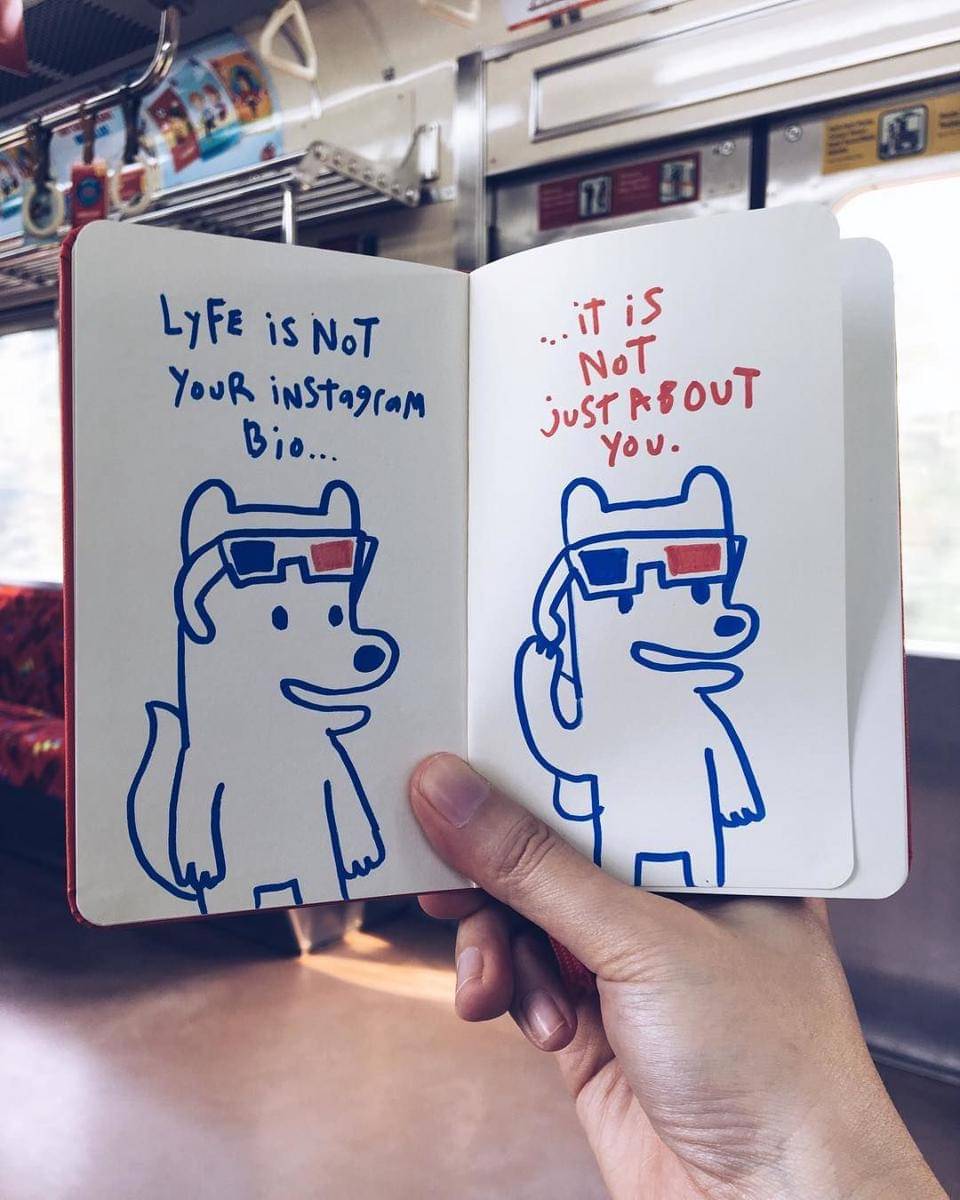 LyFE iS NoT
YouR iNStagraM
Bio...
...iT iS
NoT
juST ABOUT
You.